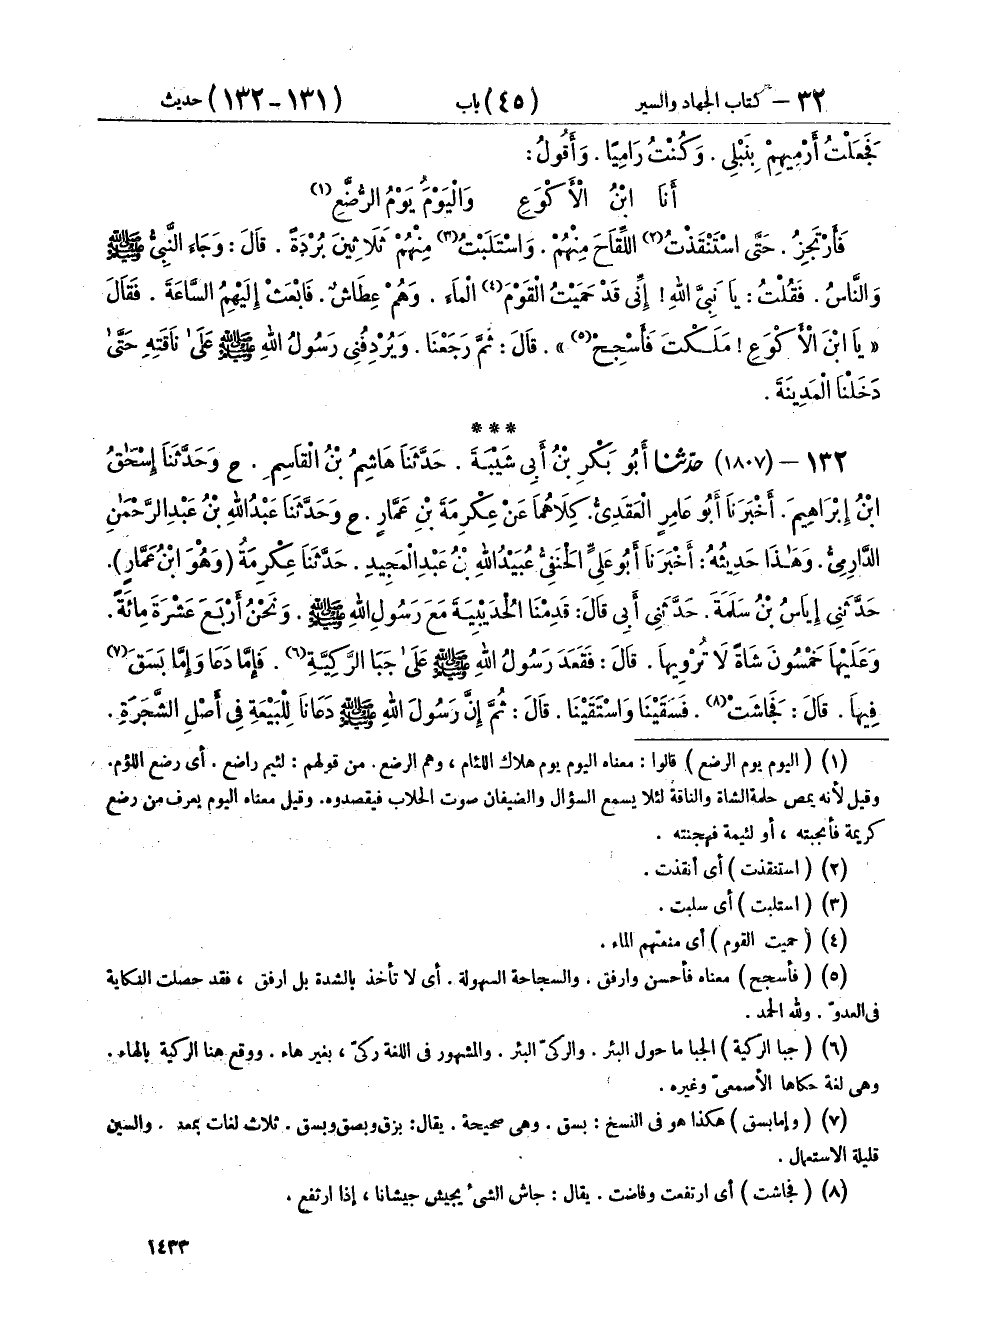 ٣٢ – كتاب الجهاد والسير (٤٥) باب (١٣١-١٣٢) حديث
فَجَعَلْتُ أَرْمِيهِمْ بِنَبْلِى . وَكُنْتُ رَامِيًا . وَأَقُولُ :
أَنَا ابْنُ الْأَكْوَعِ وَالْيَوْمُ يَوْمُ الرُّضَّعِ (١)
فَأَرْتَجِزُ . حَتَّى اسْتَنْقَذْتُ (٢) اللِّقَاحَ مِنْهُمْ . وَاسْتَلَبْتُ (٣) مِنْهُمْ ثَلَاثِينَ بُرْدَةً . قَالَ : وَجَاءَ النَّبِىُّ ﷺ
وَالنَّاسُ . فَقُلْتُ : يَا نَبِىَّ اللهِ ! إِنِّى قَدْ حَمَيْتُ الْقَوْمَ (٤) الْمَاءَ . وَهُمْ عِطَاشٌ . فَابْعَثْ إِلَيْهِمُ السَّاعَةَ . فَقَالَ
« يَا ابْنَ الْأَكْوَعِ ! مَلَكْتَ فَأَسْجِحْ (٥) » . قَالَ : ثُمَّ رَجَعْنَا . وَيُرْدِفُنِى رَسُولُ اللهِ ﷺ عَلَىٰ نَاقَتِهِ حَتَّىٰ
دَخَلْنَا الْمَدِينَةَ .
***
١٣٢ – (١٨٠٧) حدّثنا أَبُو بَكْرِ بْنُ أَبِى شَيْبَةَ . حَدَّثَنَا هَاشِمُ بْنُ الْقَاسِمِ . ح وَحَدَّثَنَا إِسْحَٰقُ
ابْنُ إِبْرَاهِيمَ . أَخْبَرَنَا أَبُو عَامِرٍ الْعَقَدِىُّ. كِلَاهُمَا عَنْ عِكْرِمَةَ بْنِ عَمَّارٍ . ح وَحَدَّثَنَا عَبْدُ اللهِ بْنُ عَبْدِ الرَّحْمَٰنِ
الدَّارِمِىُّ . وَهَٰذَا حَدِيثُهُ : أَخْبَرَنَا أَبُو عَلِىٍّ الْحَنَفِىُّ عُبَيْدُ اللهِ بْنُ عَبْدِ الْمَجِيدِ . حَدَّثَنَا عِكْرِمَةُ (وَهُوَ ابْنُ عَمَّارٍ).
حَدَّثَنِى إِيَاسُ بْنُ سَلَمَةَ . حَدَّثَنِى أَبِى قَالَ : قَدِمْنَا الْحُدَيْبِيَةَ مَعَ رَسُولِ اللهِ ﷺ . وَنَحْنُ أَرْبَعَ عَشْرَةَ مِائَةً .
وَعَلَيْهَا خَمْسُونَ شَاةً لَا تُرْوِيهَا . قَالَ : فَقَعَدَ رَسُولُ اللهِ ﷺ عَلَىٰ جَبَا الرَّكِيَّةِ (٦) . فَإِمَّا دَعَا وَإِمَّا بَسَقَ (٧)
فِيهَا . قَالَ : فَجَاشَتْ (٨) . فَسَقَيْنَا وَاسْتَقَيْنَا . قَالَ : ثُمَّ إِنَّ رَسُولَ اللهِ ﷺ دَعَانَا لِلْبَيْعَةِ فِى أَصْلِ الشَّجَرَةِ .
(١) ( اليوم يوم الرضع ) قالوا : معناه اليوم يوم هلاك اللئام ، وهم الرضع . من قولهم : لئيم راضع . أى رضع اللؤم.
وقيل لأنه يمص حلمة الشاة والناقة لئلا يسمع السؤال والضيفان صوت الحلاب فيقصدوه. وقيل معناه اليوم يعرف من رضع
كريمة فأنجبته ، أو لئيمة فهجنته .
(٢) ( استنقذت ) أى أنقذت .
(٣) ( استلبت ) أى سلبت .
(٤) ( حميت القوم ) أى منعتهم الماء .
(٥) ( فأسجح ) معناه فأحسن وارفق . والسجاحة السهولة . أى لا تأخذ بالشدة بل ارفق ، فقد حصلت النكاية
فى العدوّ . ولله الحمد .
(٦) ( جبا الركية ) الجبا ما حول البئر . والركىّ البئر . والمشهور فى اللغة ركىّ ، بغير هاء . ووقع هنا الركية بالهاء .
وهى لغة حكاها الأصمعىّ وغيره .
(٧) ( وإما بسق ) هكذا هو فى النسخ : بسق . وهى صحيحة . يقال: بزق وبصق وبسق . ثلاث لغات بمعنى . والسين
قليلة الاستعمال .
(٨) ( فجاشت ) أى ارتفعت وفاضت . يقال : جاش الشىء يجيش جيشانا ، إذا ارتفع .
١٤٣٣